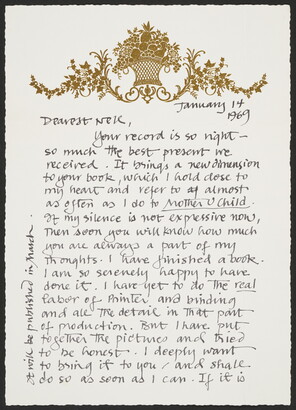 January 14
1969
Dearest Nell,
Your record is so right –
so much the best present we
received. It brings a new dimension
to your book, which I hold close to
my heart and refer to almost
as often as I do to Mother & Child.
If my silence is not expressive now,
Then soon you will know how much
you are always a part of my
thoughts. I have finished a book.
I am so serenely happy to have
done it. I have yet to do the real
labor of Printer, and binding
and all the detail in that part
of production. But I have put
together the pictures and tried
to be honest. I deeply want
to bring it to you/and shall
do so as soon as I can. If it is
It will be published in March.